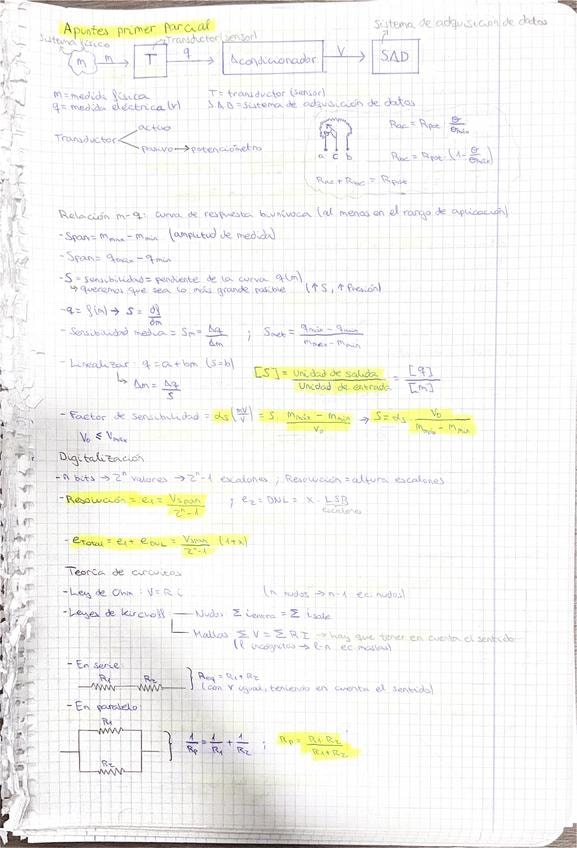 Apuntes primer Parcial
Sistema de adquisición de datos
Sistema físico
Transductor (sensor)
m m T q Acondicionador V SAD
m = medida física
T = transductor (sensor)
q = medida eléctrica (v)
SAD = sistema de adquisición de datos
Transductor
activo
pasivo → potenciómetro
a c b
Rac = Rpot · θ/θmax
Rbc = Rpot · (1 - θ/θmax)
Rac + Rbc = Rpot
Relación m-q: curva de respuesta biunívoca (al menos en el rango de aplicación)
- Span = mmax - mmin (amplitud de medida)
- Span = qmax - qmin
- S = sensibilidad = pendiente de la curva q(m)
↳ queremos que sea lo más grande posible (↑S, ↑Presión)
- q = f(m) → S = ∂f/∂m
- Sensibilidad media = Sm = Δq/Δm ; Snet = (qmáx - qmin)/(mmax - mmin)
- Linealizar: q = a + bm (S=b)
↳ Δm = Δq/S
[S] = Unidad de salida/Unidad de entrada = [q]/[m]
- Factor de sensibilidad = αs (mV/V) = S · (mmáx - mmin)/V0 → S = αs · V0/(mmáx - mmin)
V0 ≤ Vmax
Digitalización
- n bits → 2ⁿ valores → 2ⁿ-1 escalones ; Resolución = altura escalones
- Resolución = e1 = Vspan/(2ⁿ-1) ; e2 = DNL = x · LSB
escalones
- eTotal = e1 + eDNL = Vspan/(2ⁿ-1) · (1+x)
Teoría de circuitos
- Ley de Ohm: V = R i
(n nudos → n-1 ec. nudos)
- Leyes de kirchoff
Nudos Σ i entra = Σ i sale
Mallas Σ V = Σ R I → hay que tener en cuenta el sentido
(l incógnitas → l-n ec mallas)
- En serie:
R1 R2
Req = R1 + R2
(con V igual, teniendo en cuenta el sentido)
- En paralelo:
R1
R2
1/Rp = 1/R1 + 1/R2 ; Rp = R1·R2/(R1+R2)